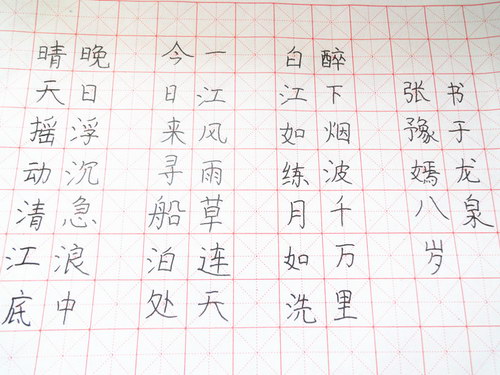 晴天摇动清江底
晚日浮沉急浪中
今日来寻船泊处
一江风雨草连天
白江如练月如洗
醉下烟波千万里
张豫嫣八岁
书于龙泉